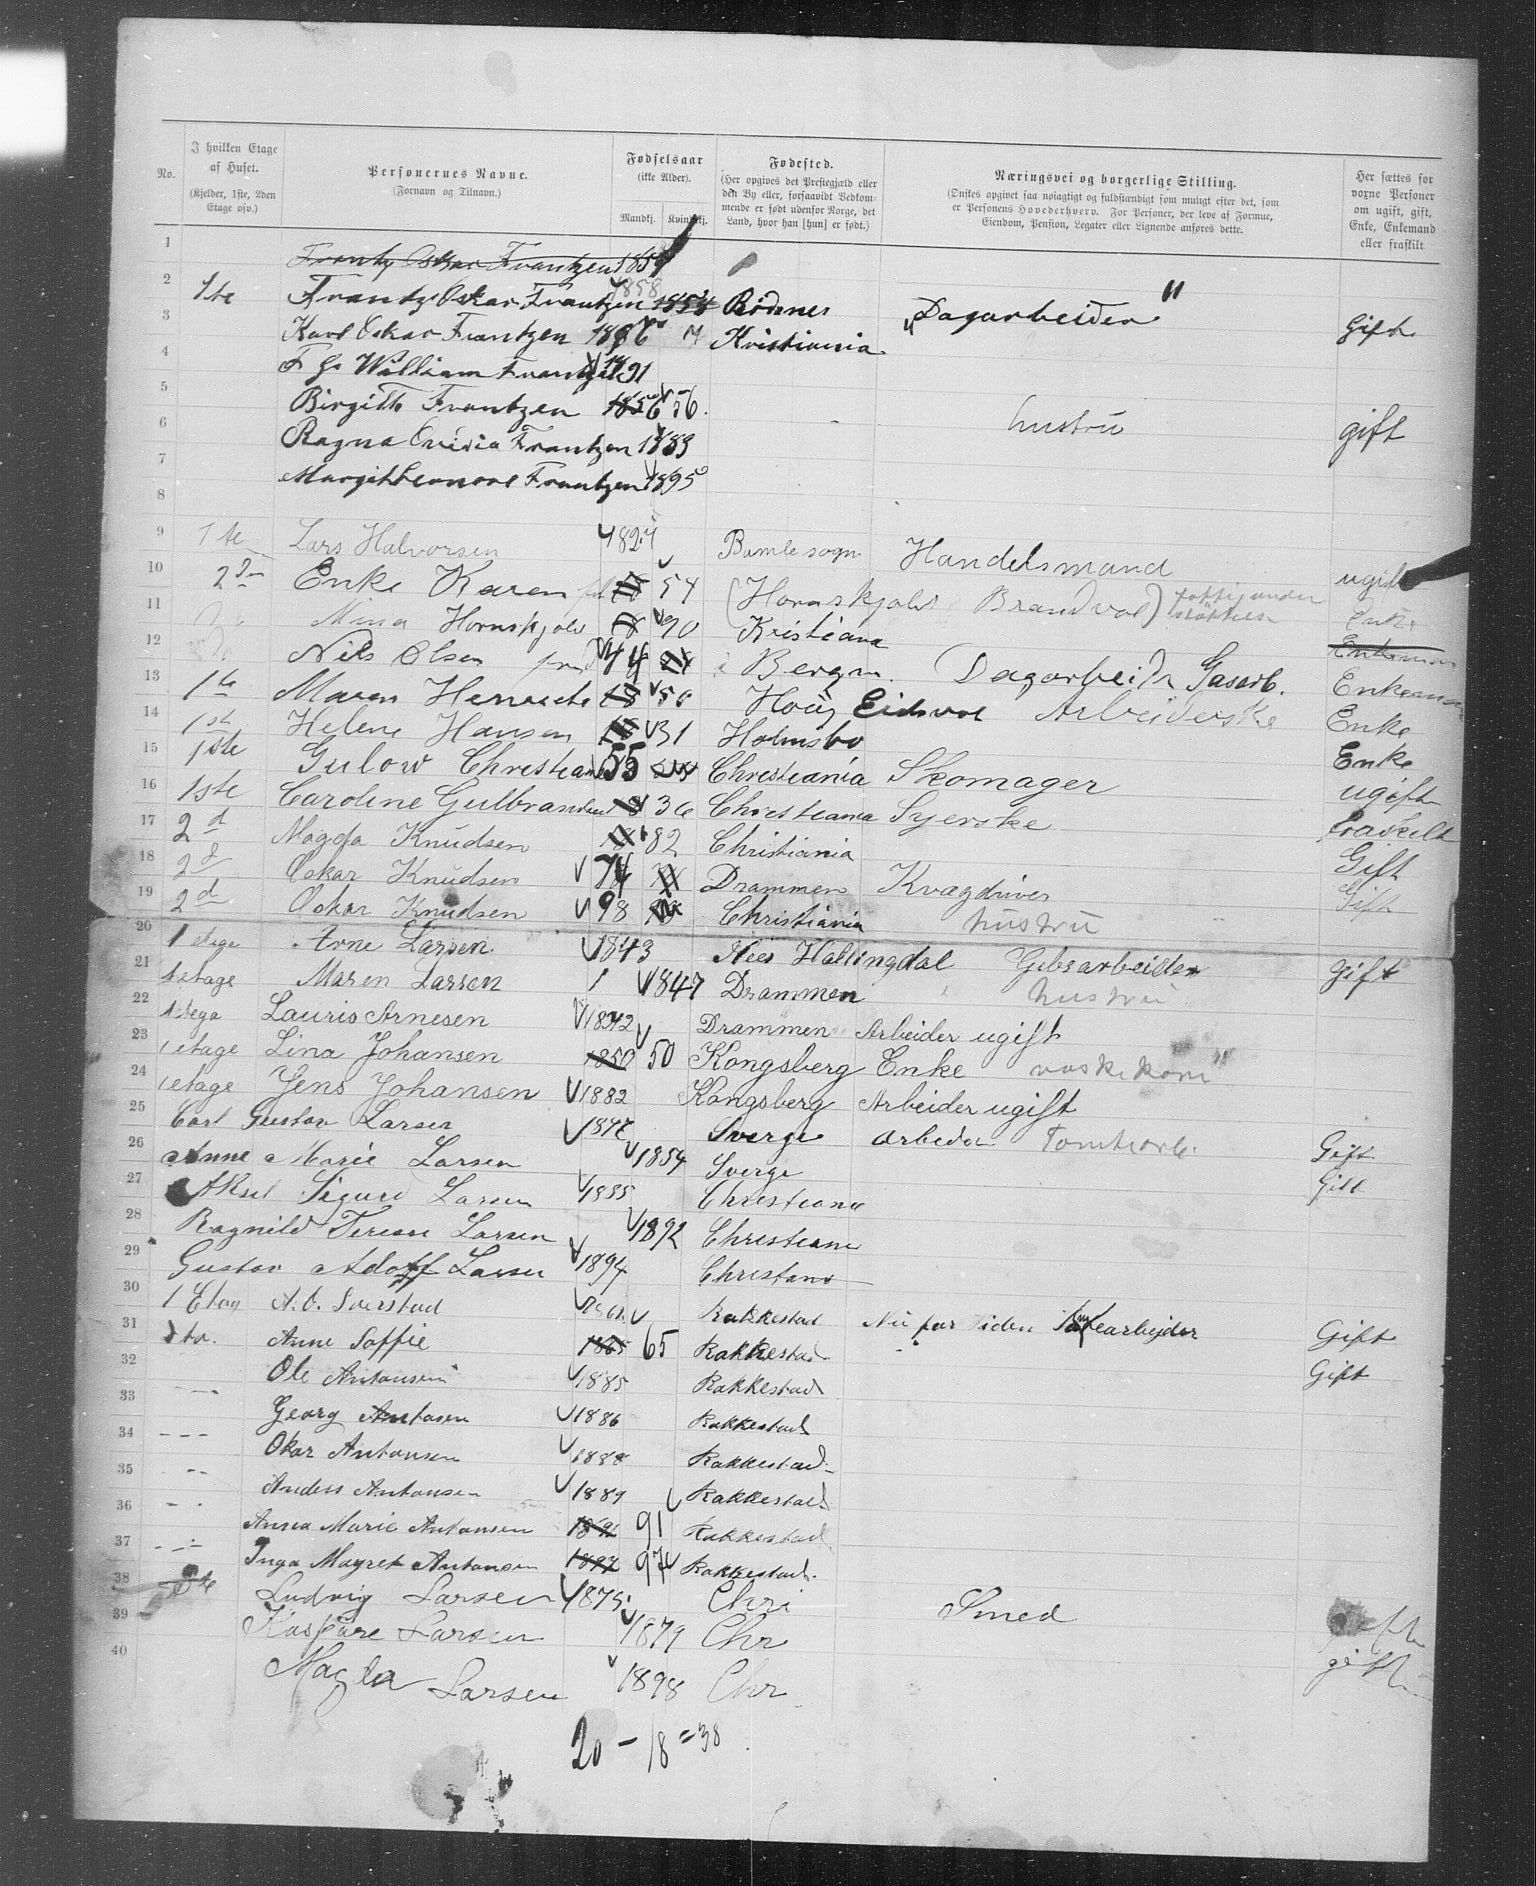 No.
I hvilken Etage af Huset.
(Kjelder, 1ste, 2den Etage osv.)
Personernes Navne.
(Fornavn og Tilnavn.)
Fødselsaar
(ikke Alder).
Mandkj. Kvindkj.
Fødested.
(Her opgives det Prestegjæld eller den By eller, forsaavidt Vedkommende er født udenfor Norge, det Land, hvor han [hun] er født.)
Næringsvei og borgerlige Stilling.
(Ønskes opgivet saa nøiagtigt og fuldstændigt som muligt efter det, som er Personens Hovederhverv. For Personer, der leve af Formue, Eiendom, Pension, Legater eller Lignende anføres dette.
Her sættes for voxne Personer om ugift, gift, Enke, Enkemand eller fraskilt.
1 Frantz Oskar Frantzen
2 1te Frantz Oskar Frantzen 1858 Rødenes Dagarbeider Gift
3 Karl Oskar Frantzen Kristiania
4 William Frantzen 91
5 Birgitte Frantzen 1856 56 hustru gift
6 Ragna Frantzen 1883
7 Margit Leonore Frantzen 1895
8
9 1te Lars Halvorsen 1824 Bamle sogn Handelsmand ugift
10 2den Enke Karen 54 (Hornskjolds Brandvol) Enke
11 Mina Hornskjold 90 Kristiana
12 Nils Olsen 44 Bergen Dagarbeider Gasarb. Enkeman
13 1te Maren 50 Eidsvol Arbeiderske Enke
14 1st Helene Hansen 31 Holmsbo Enke
15 1ste Gulow Christian 55 Christiania Skomager ugift
16 1ste Caroline Gulbrandsen 36 Christiania Syerske fraskilt
17 2d Magda Knudsen 82 Christiania Gift
18 2d Oskar Knudsen 74 Drammen Kvægdriver Gift
19 2d Oskar Knudsen 98 Christiania hustru
20 1 etage Arne Larsen 1843 Nees Hallingdal Gibsarbeider Gift
21 1 etage Maren Larsen 1847 Drammen hustru
22 Lauris Arnesen Drammen Arbeider ugift
23 1 etage Lina Johansen 1850 50 Kongsberg Enke vaskekone
24 1 etage Jens Johansen 1882 Kongsberg Arbeider ugift
25 Carl Gustav Larsen Sverge Arbeder Tomtearb. Gift
26 Anne Marie Larsen 1854 Sverge Gift
27 Aksel Sigurd Larsen Christiania
28 Ragnild Larsen 1892 Christiania
29 Gustav Adolf Larsen 1894 Christiana
30 1 Etag A. O. Rakkestad Nu for Tiden Gift
31 Anne Soffie 1865 65 Rakkestad Gift
32 Ole Antonsen 1885 Rakkestad
33 Georg Antonsen 1886 Rakkestad
34 Oskar Antonsen 1888 Rakkestad
35 Anders Antonsen 1889 Rakkestad
36 Anna Marie Antonsen 91 Rakkestad
37 Inga Magret Antonsen 97 Rakkestad
38 Ludvig Larsen 1875 Chri Smed gift
39 Kaspare Larsen 1879 Chr gift
40 Magda Larsen 1898 Chr
20 - 18 = 38